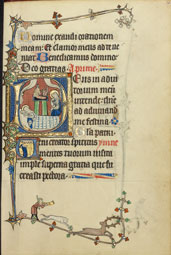 Domine exaudi orationem
meam Et clamor meus ad te ve
niat Benedicamus domino
Deo gratias A prime
Deus in adiu
torium meum
intende
ad adiuuand
me festina
patri
eni creator spiritus ymne
mentes tuorum visita
imple superna gratia que tu
creasti pectora